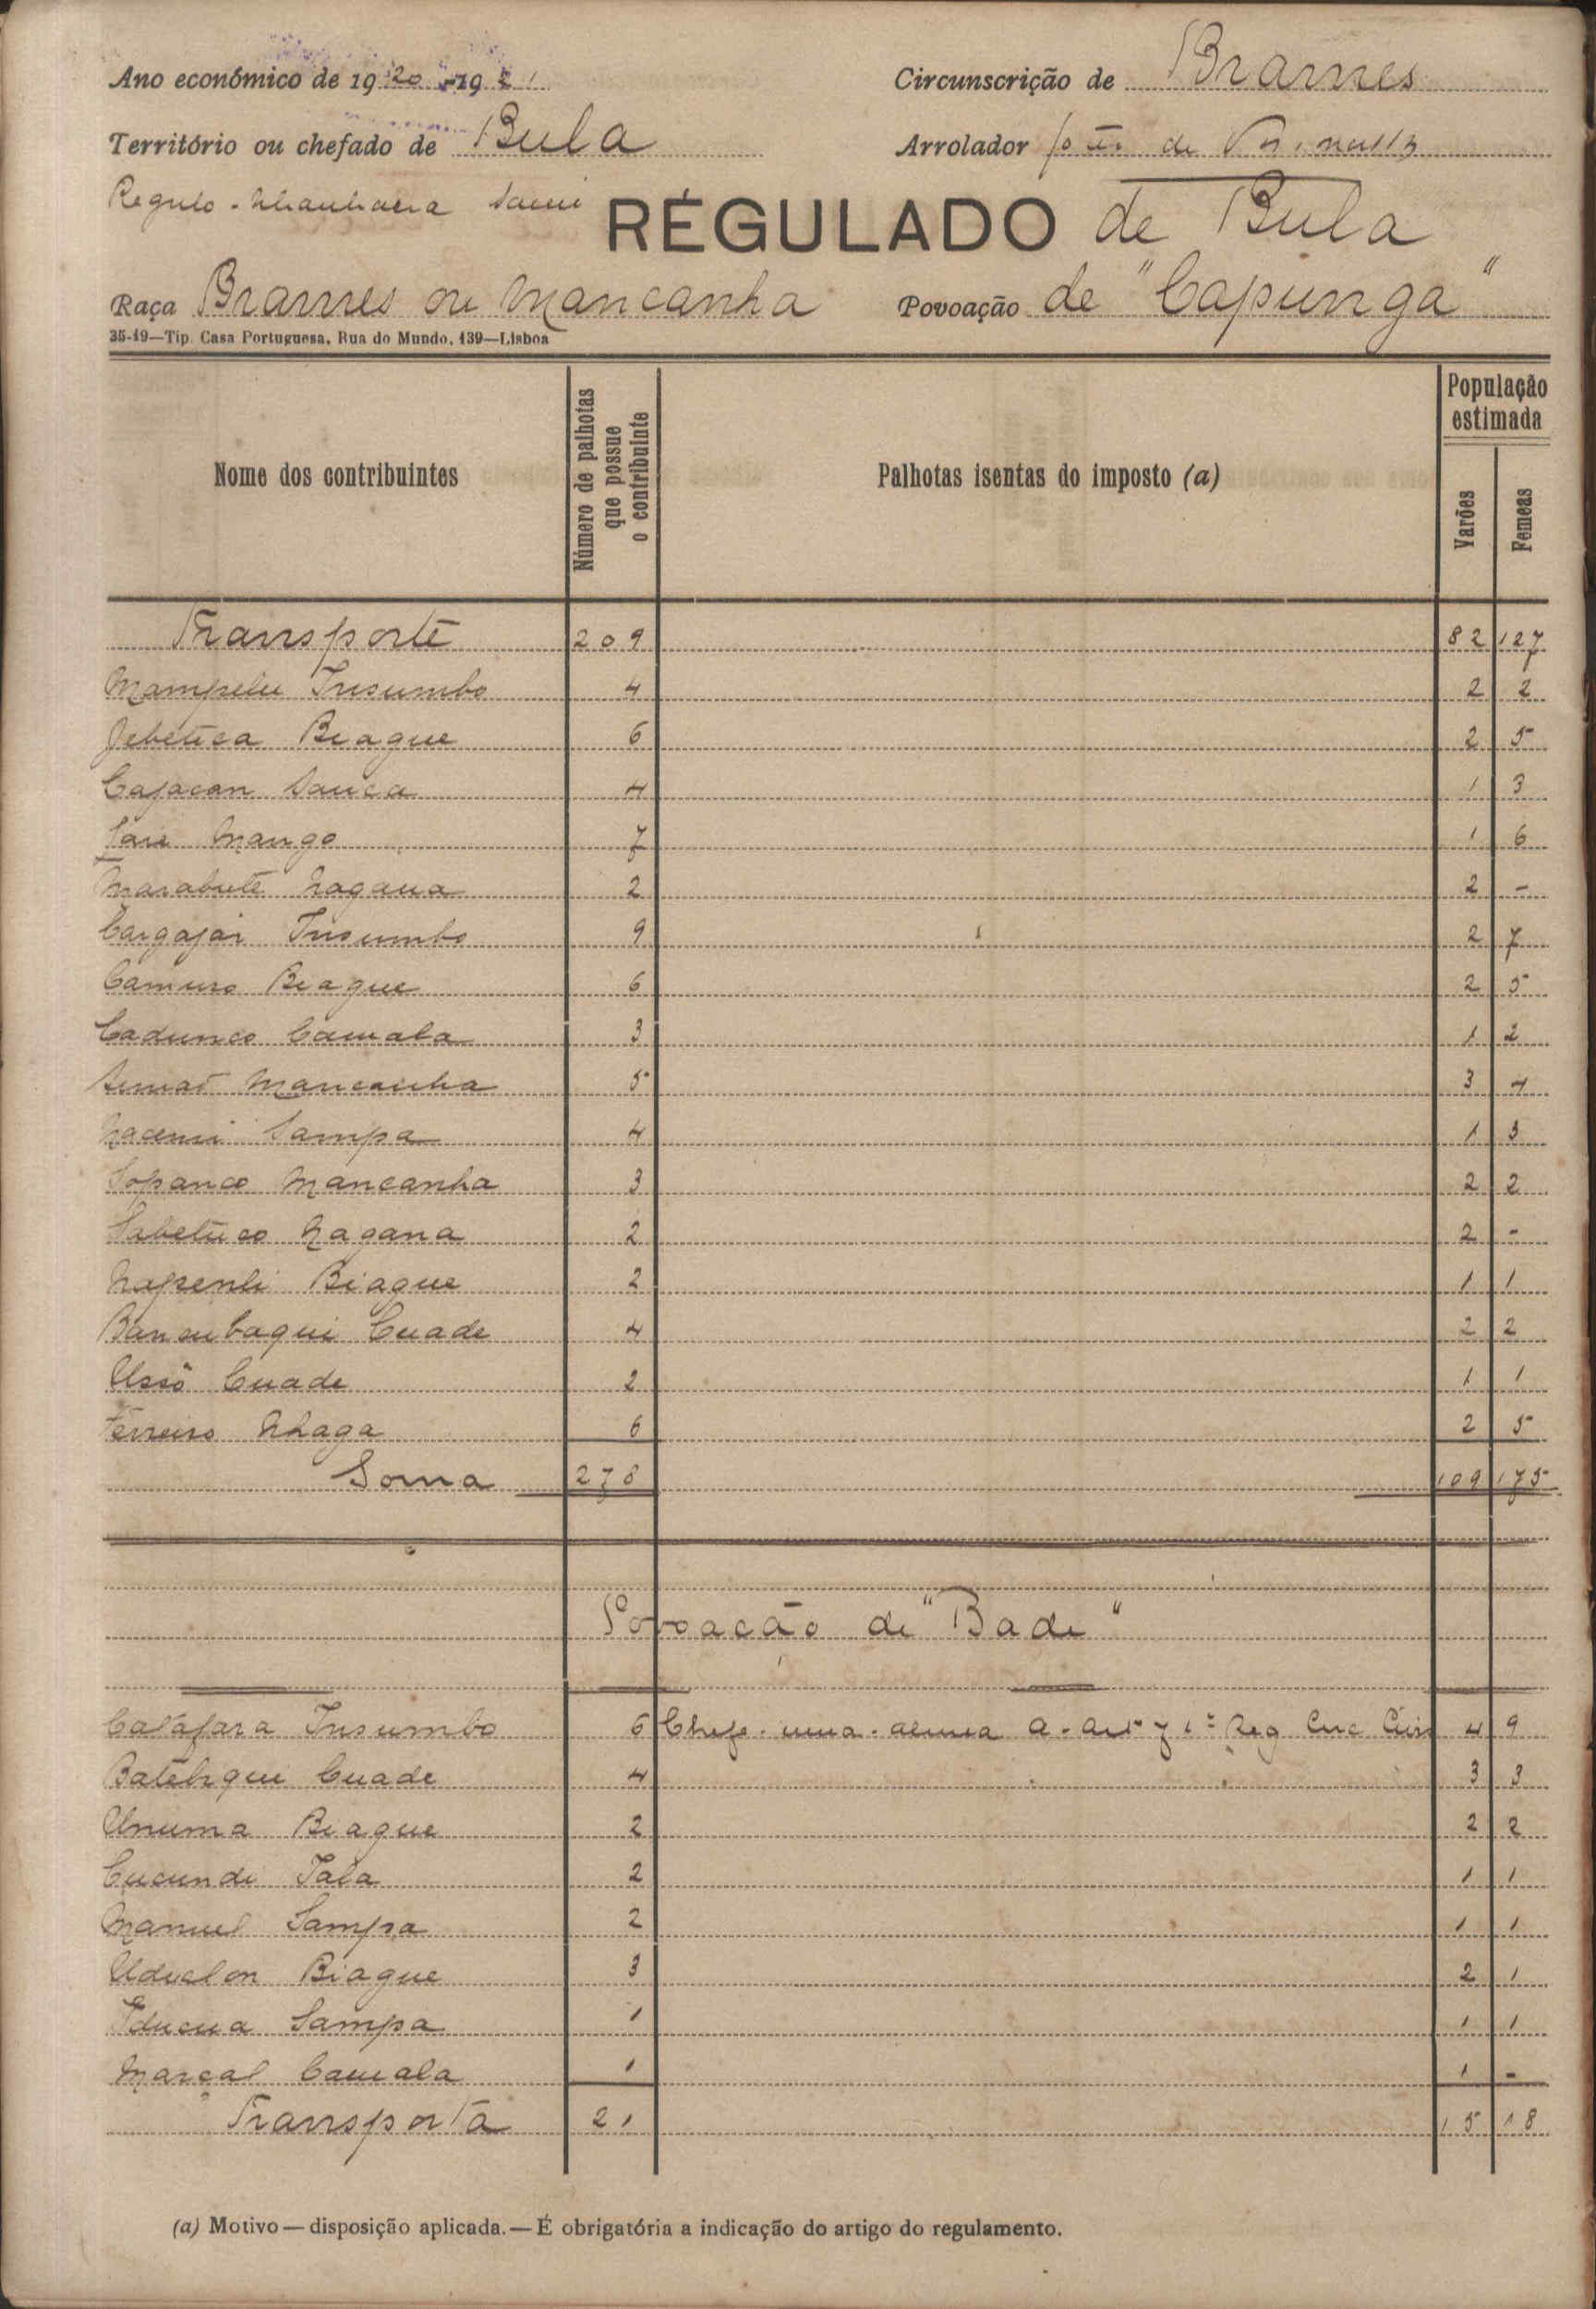 Ano económico de 1920-1921
Circunscrição de Brames
Território ou chefado de Bula
Arrolador de
Regulo
RÉGULADO de Bula
Raça Brames ou Mancanha
Povoação de "Capunga"
35-19—Tip. Casa Portuguesa, Rua do Mundo, 139—Lisboa
Nome dos contribuintes
Número de palhotas que possue o contribuinte
Palhotas isentas do imposto (a)
População estimada
Varões
Femeas
Transporte 209 82 127
Mampelu Insumbo 4 2 2
Jebetica Biague 6 2 5
Cajacan Sanca 4 1 3
Mango 7 1 6
Marabute Nagana 2 2 -
Cargajar Insumbo 9 2 7
Camuro Biague 6 2 5
Cadunco Camala 3 1 2
Mancanha 5 3 4
Sampa 4 1 3
Sopanco Mancanha 3 2 2
Sabetuco Nagana 2 2 -
Napenli Biague 2 1 1
Cuade 4 2 2
Ussô Cuade 2 1 1
Ferreiro Nhaga 6 2 5
Soma 278 109 175
Povoação de "Bade"
Catafara Insumbo 6 Chefe 4 9
Cuade 4 3 3
Unuma Biague 2 2 2
Cucunde Tala 2 1 1
Manuel Sampa 2 1 1
Uduclon Biague 3 2 1
Iducua Sampa 1 1 1
Marcal Camala 1 1 -
Transporta 21 15 18
(a) Motivo — disposição aplicada. — É obrigatória a indicação do artigo do regulamento.